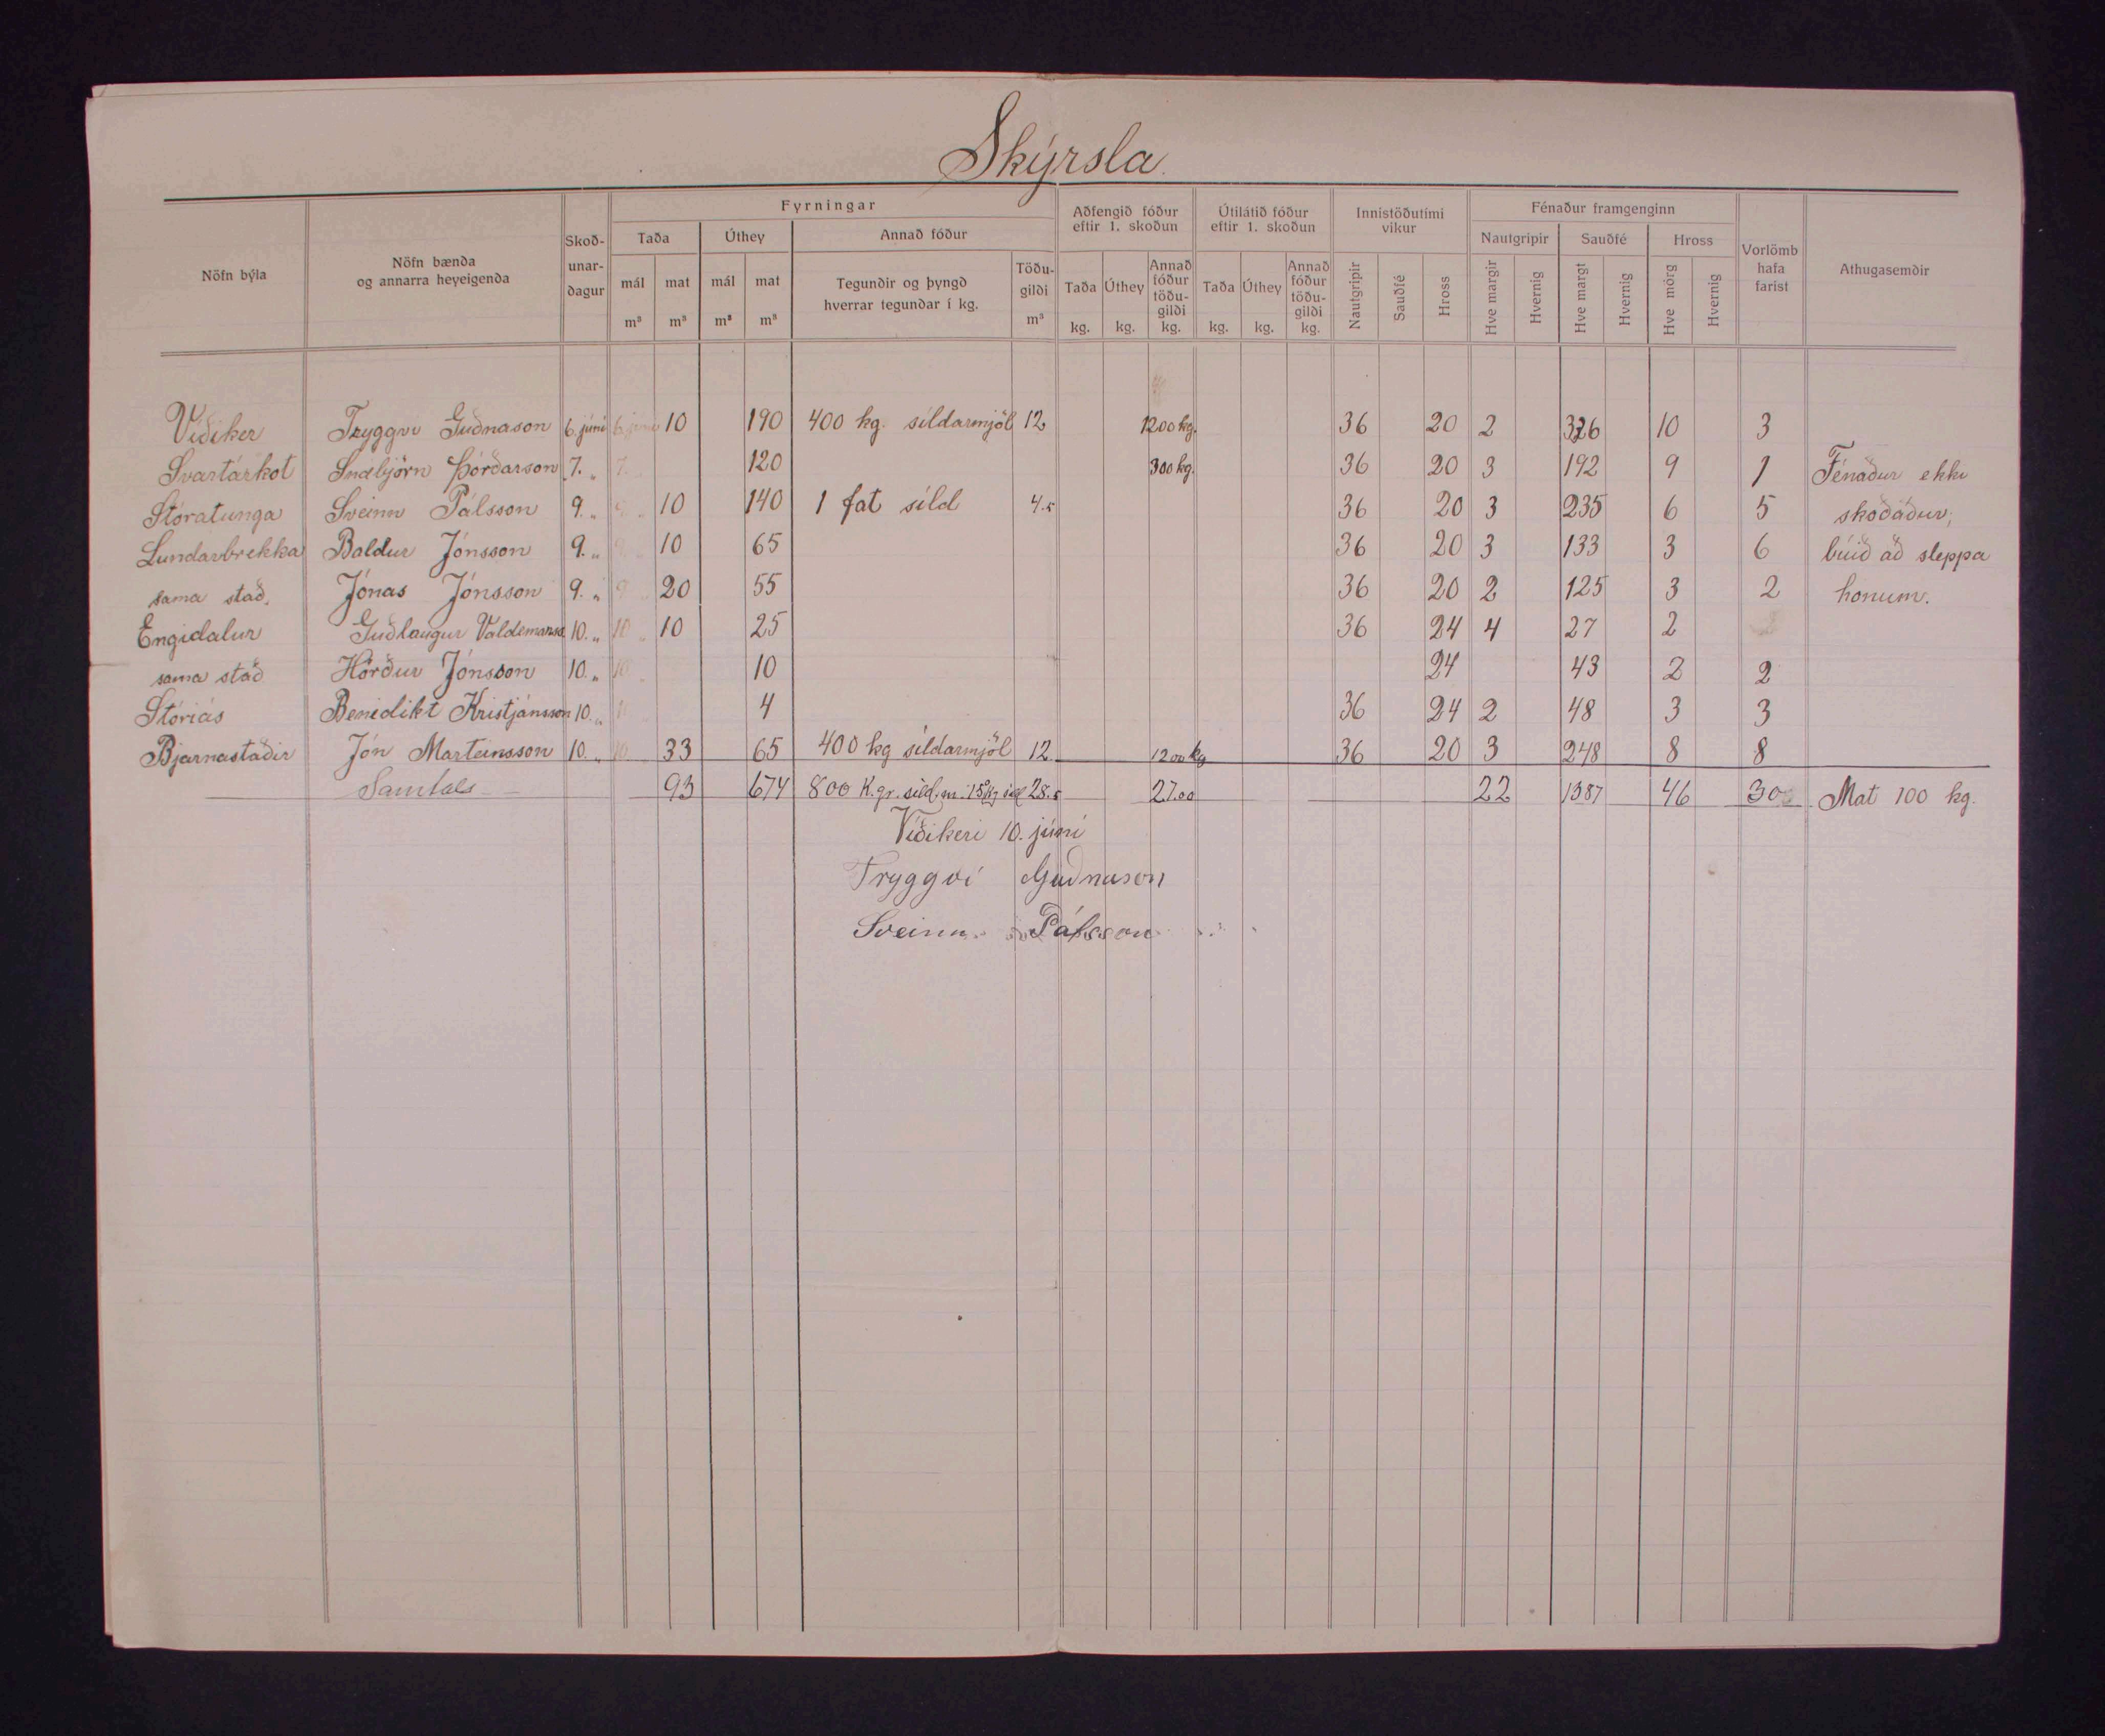 Skýrsla.
Nöfn býla
Nöfn bænda og annarra heyeigenda
Skoð-unar-dagur
Fyrningar
Taða
mál m³
mat m³
Úthey
mál m³
mat m³
Annað fóður
Tegundir og þyngd hverrar tegundar í kg.
Töðu-gildi m³
Aðfengið fóður eftir 1. skoðun
Taða kg.
Úthey kg.
Annað fóður töðu-gildi kg.
Útilátið fóður eftir 1. skoðun
Taða kg.
Úthey kg.
Annað fóður töðu-gildi kg.
Innistöðutími vikur
Nautgripir
Sauðfé
Hross
Fénaður framgenginn
Nautgripir
Hve margir
Hvernig
Sauðfé
Hve margt
Hvernig
Hross
Hve mörg
Hvernig
Vorlömb hafa farist
Athugasemdir
Víðiker Tryggvi Guðnason 6. júní 6. júní 10 190 400 kg. síldarmjöl 12 1200 kg. 36 20 2 326 10 3
Svartárkot Snæbjörn Þórðarson 7. „ 7. 120 300 kg. 36 20 3 192 9 1 Fénaður ekki
Stóratunga Sveinn Pálsson 9. „ 9 „ 10 140 1 fat síld 4.5 36 20 3 235 6 5 skoðaður;
Lundarbrekka Baldur Jónsson 9. „ 9. „ 10 65 36 20 3 133 3 6 búið að sleppa
sama stað. Jónas Jónsson 9. „ 9 „ 20 55 36 20 2 125 3 2 honum.
Engidalur Guðlaugur Valdemarss. 10. „ 10 „ 10 25 36 24 4 27 2
sama stað Hörður Jónsson 10. „ 10 „ 10 24 43 2 2
Stóriás Benedikt Kristjánsson 10. „ 4 36 24 2 48 3 3
Bjarnastaðir Jón Marteinsson 10. „ 10 33 65 400 kg síldarmjöl 12 1200 kg 36 20 3 248 8 8
Samtals 93 674 800 K.gr. síld.m. 28.5 27.00 22 1387 46 30 Mat 100 kg.
Víðikeri 10. júní
Tryggvi Guðnason
Sveinn Pálsson